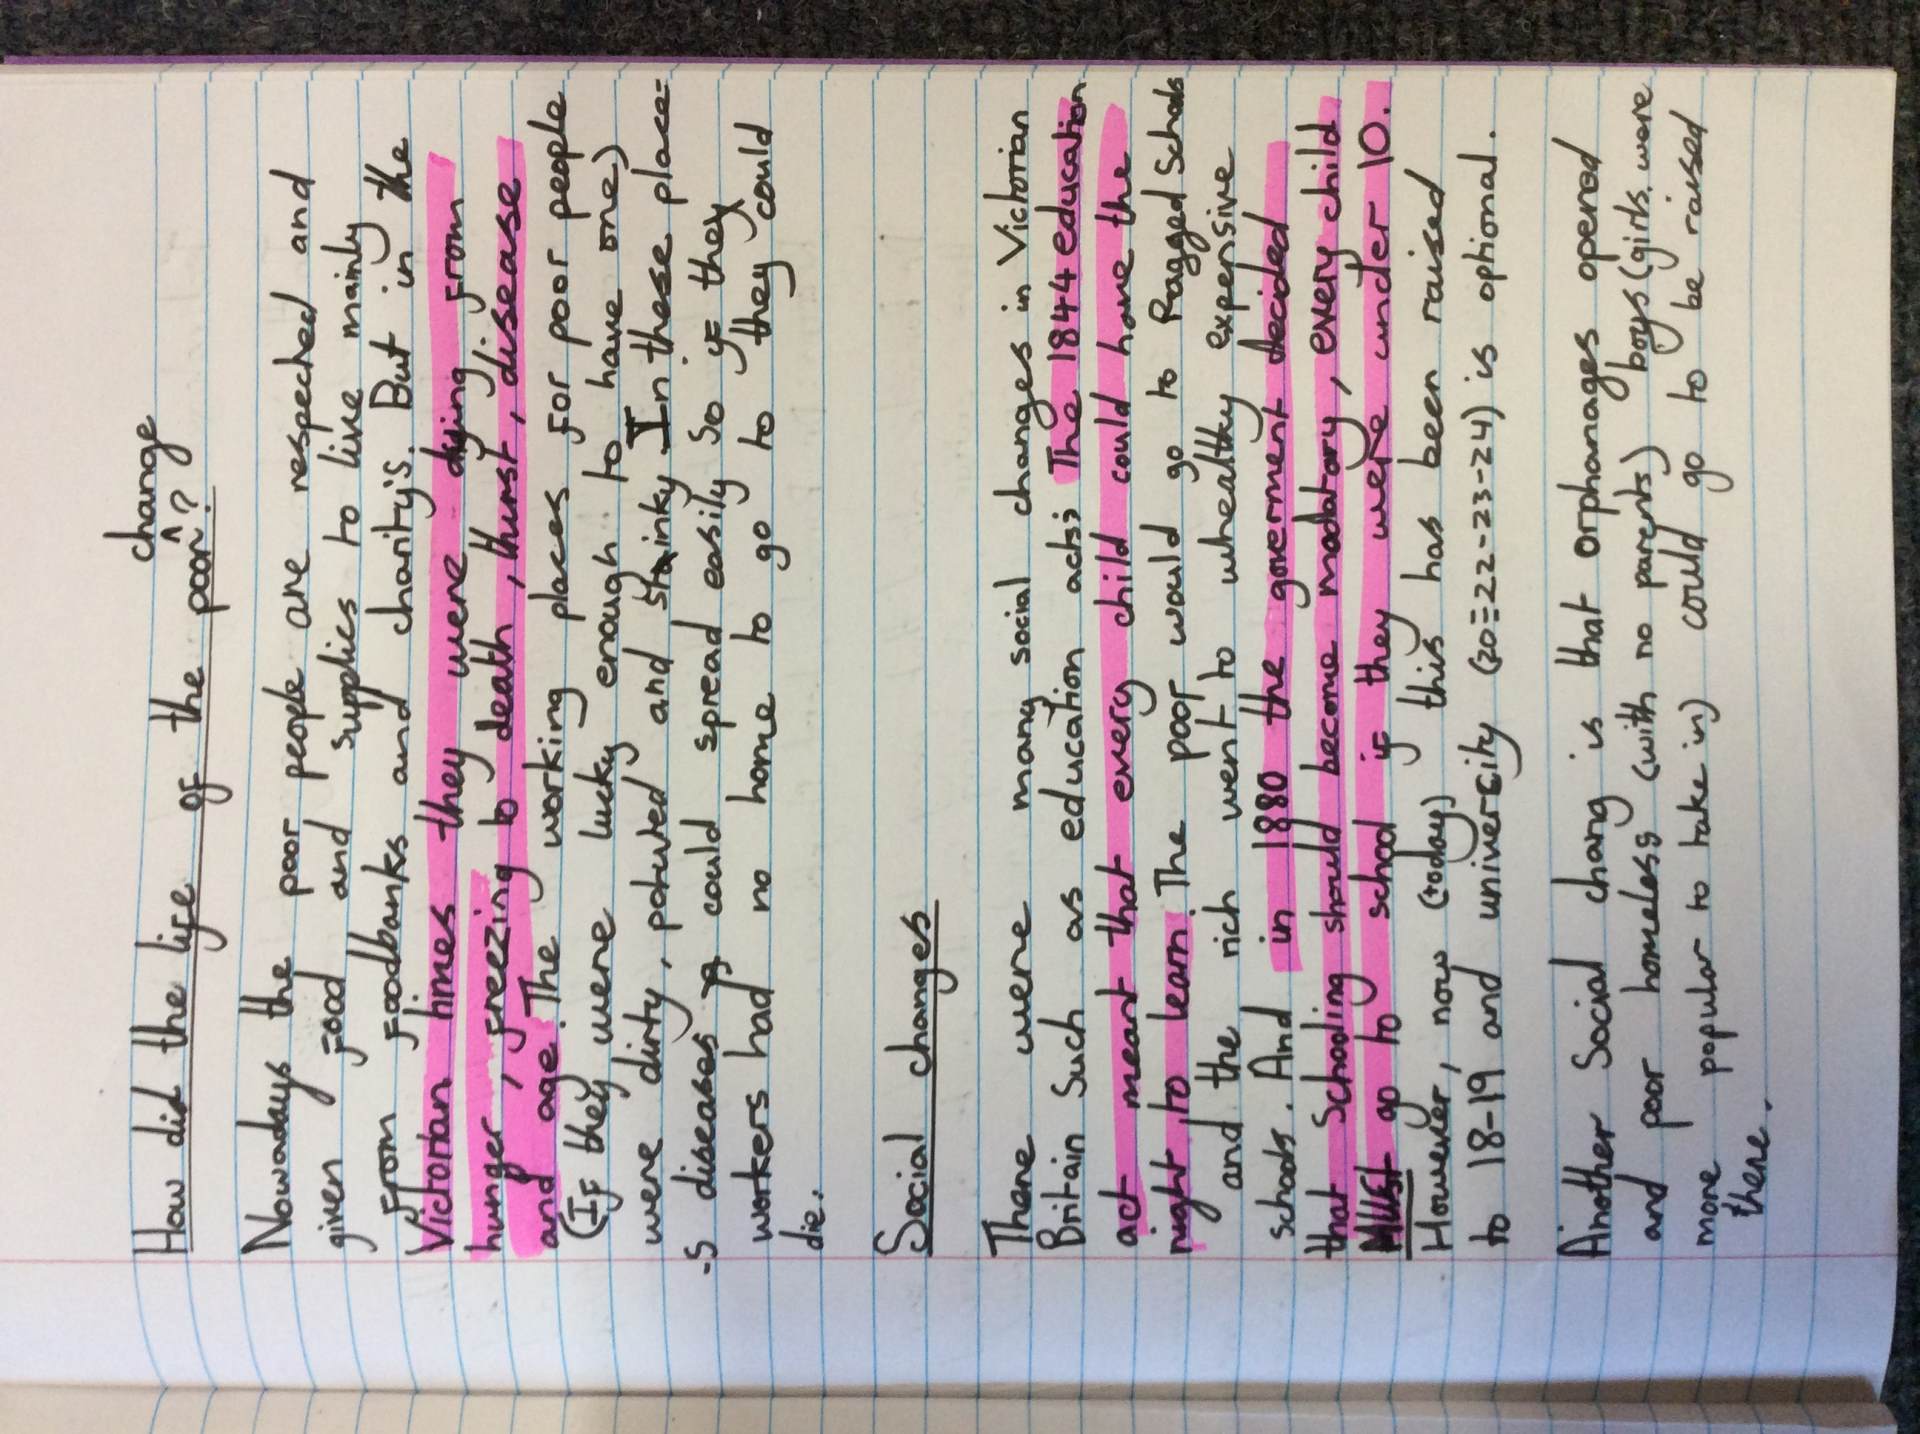 How did the life of the poor change?
Nowadays the poor people are respected and
given food and supplies to live mainly
from foodbanks and charity's. But in the
Victorian times they were dying from
hunger, freezing to death, thurst, disease
and age. The working places for poor people
(If they were lucky enough to have one)
were dirty, poluted and stinky In these place-
-s diseases could spread easily So if they
workers had no home to go to they could
die.
Social changes
There were many social changes in Victorian
Britain Such as education acts; The 1844 education
act meant that every child could have the
right to learn. The poor would go to Ragged Schools
and the rich went to whealthy expensive
schools. And in 1880 the government decided
that schooling should become madatory, every child
MUST go to school if they were under 10.
However, now (today) this has been raised
to 18-19 and univercity (20-22-23-24) is optional.
Another Social chang is that orphanages opened
and poor homeless (with no parents) boys (girls were
more popular to take in) could go to be raised
there.